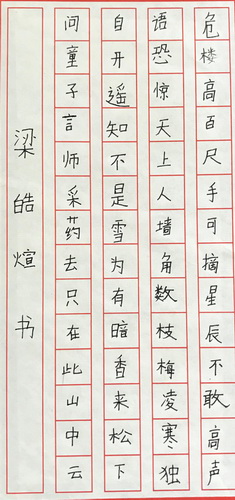 危楼高百尺手可摘星辰不敢高声
语恐惊天上人墙角数枝梅凌寒独
自开遥知不是雪为有暗香来松下
问童子言师采药去只在此山中云
梁皓煊书